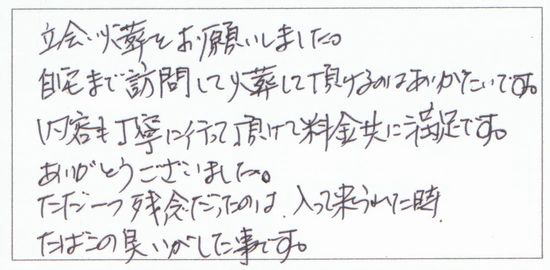 立会い火葬をお願いしました。
自宅まで訪問して火葬して頂けるのはありがたいです。
内容も丁寧に行って頂けて料金共に満足です。
ありがとうございました。
ただ一つ残念だったのは、入って来られた時
たばこの臭いがした事です。